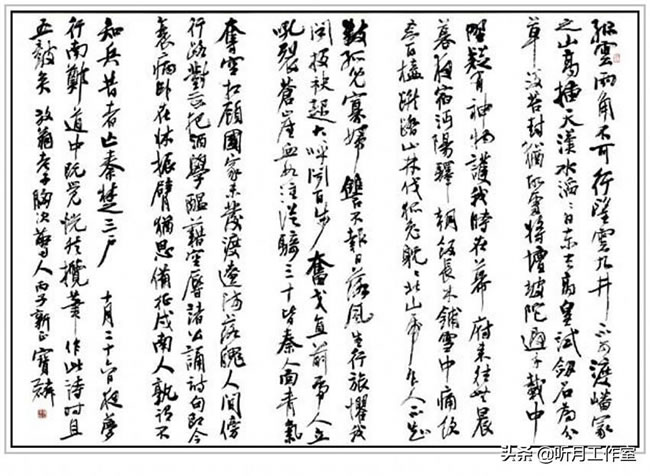 孤雲兩角不可行望雲九井不可渡嶓冢
之山高插天漢水滔滔日東去高皇試劍石為分
草沒苔封猶故處將壇坡陀過千載中
野疑有神物護我時在幕府來往無晨
暮夜宿沔陽驛朝飯長木鋪雪中痛飲
百榼蹴踏山林伐狐兔眈眈北山虎食人不知
數孤兒寡婦讎不報日落風生行旅懼我
聞投袂起大呼聞百步奮戈直前虎人立
吼裂蒼崖血如注從騎三十皆秦人面青氣
奪空相顧國家未發渡遼師落魄人間傍
行路對花把酒學醞藉空辱諸公誦詩句即今
衰病臥在床振臂猶思備征戍南人孰謂不
知兵昔者亡秦楚三戶 十月二十六日夜夢
行南鄭道中既覺恍然攬筆作此詩時且
五鼓矣 放翁老子胸次驚人 丙子新正 寶麟
头条 @听月工作室